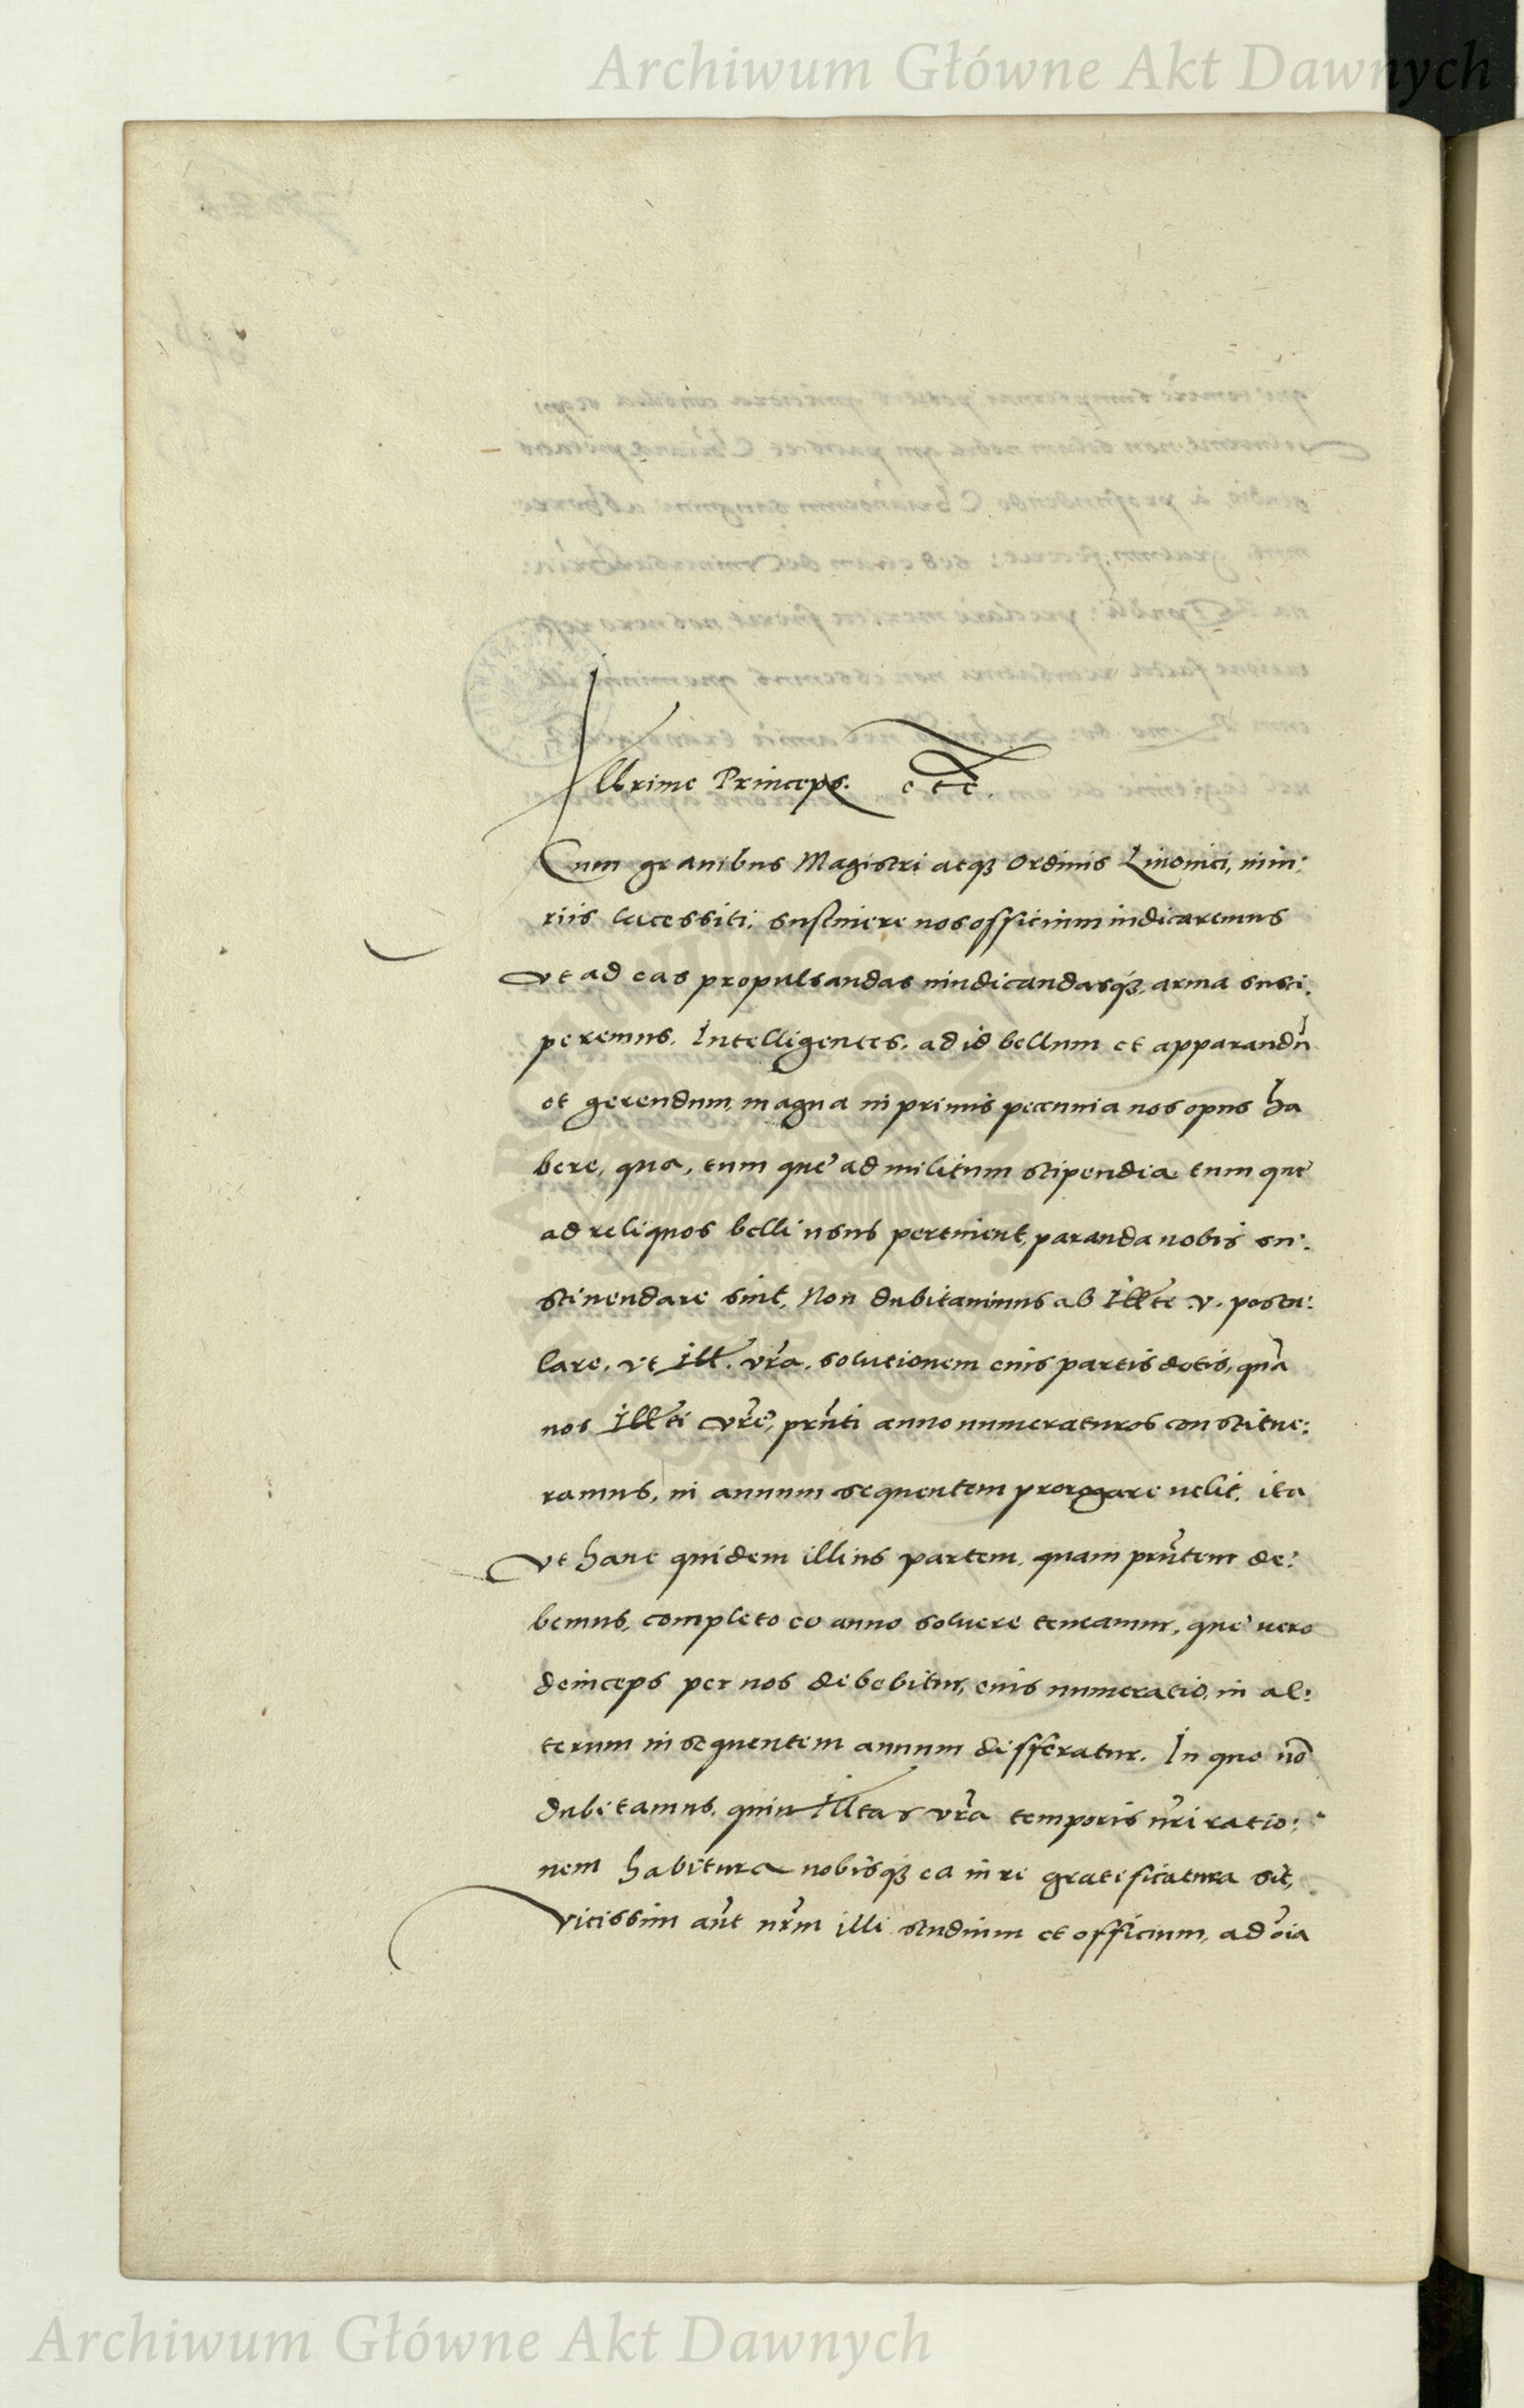 Archiwum Główne Akt Dawnych
Illrime Princeps. etc.
Cum gravibus Magistri atq3 Ordinis Livonici, iniu:
riis lacessiti, sustinere nos officium iudicaremus
Vt ad eas propulsandas vindicandasq3, arma susci:
peremus, Intelligentes, ad id bellum et apparandũ
et gerendum, magna in primis pecunia nos opus ha
bere, qua, tum quę ad militum stipendia tum quę
ad reliquos belli usus pertinent, paranda nobis
sint, Non dubitavimus ab Illte v. postu:
lare, vt Ill. vrã, solutionem eius partis dotis, quã
nos Illti vrę, prñti anno numeraturos constitue:
ramus, in annum sequentem prorogare velit, ita
Vt hanc quidem illius partem, quam prñtem de:
bemus, completo eo anno solvere teneamur, quę vero
deinceps per nos debebitur, eius numeratio, in al:
terum insequentem annum differatur. In quo nõ
dubitamus, quin Illtas vrã temporis nri ratio:
nem habitura nobisq3 ea in re gratificatura sit,
Vicissim aut nrm illi studium et officium, ad oia
Archiwum Główne Akt Dawnych